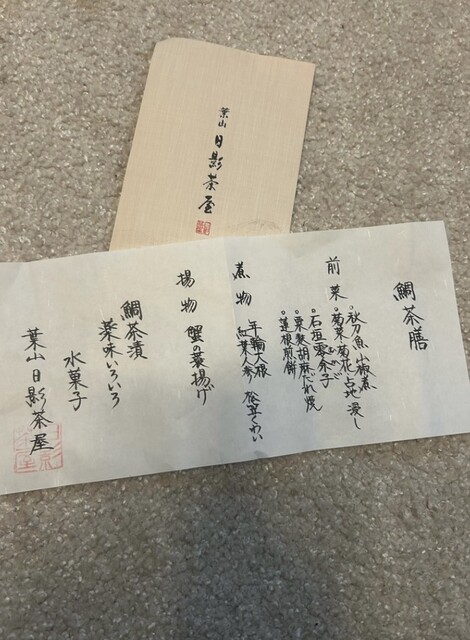 葉山 日影茶屋
鯛茶膳
前菜
・秋刀魚山椒煮
・菊菜菊花占地浸し
むかご
・石垣零余子
胡麻だれ焼
・蓮根煎餅
煮物
年輪大根
紅葉人参 松笠くわい
揚物 蟹の蓑揚げ
鯛茶漬
薬味いろいろ
水菓子
葉山日影茶屋